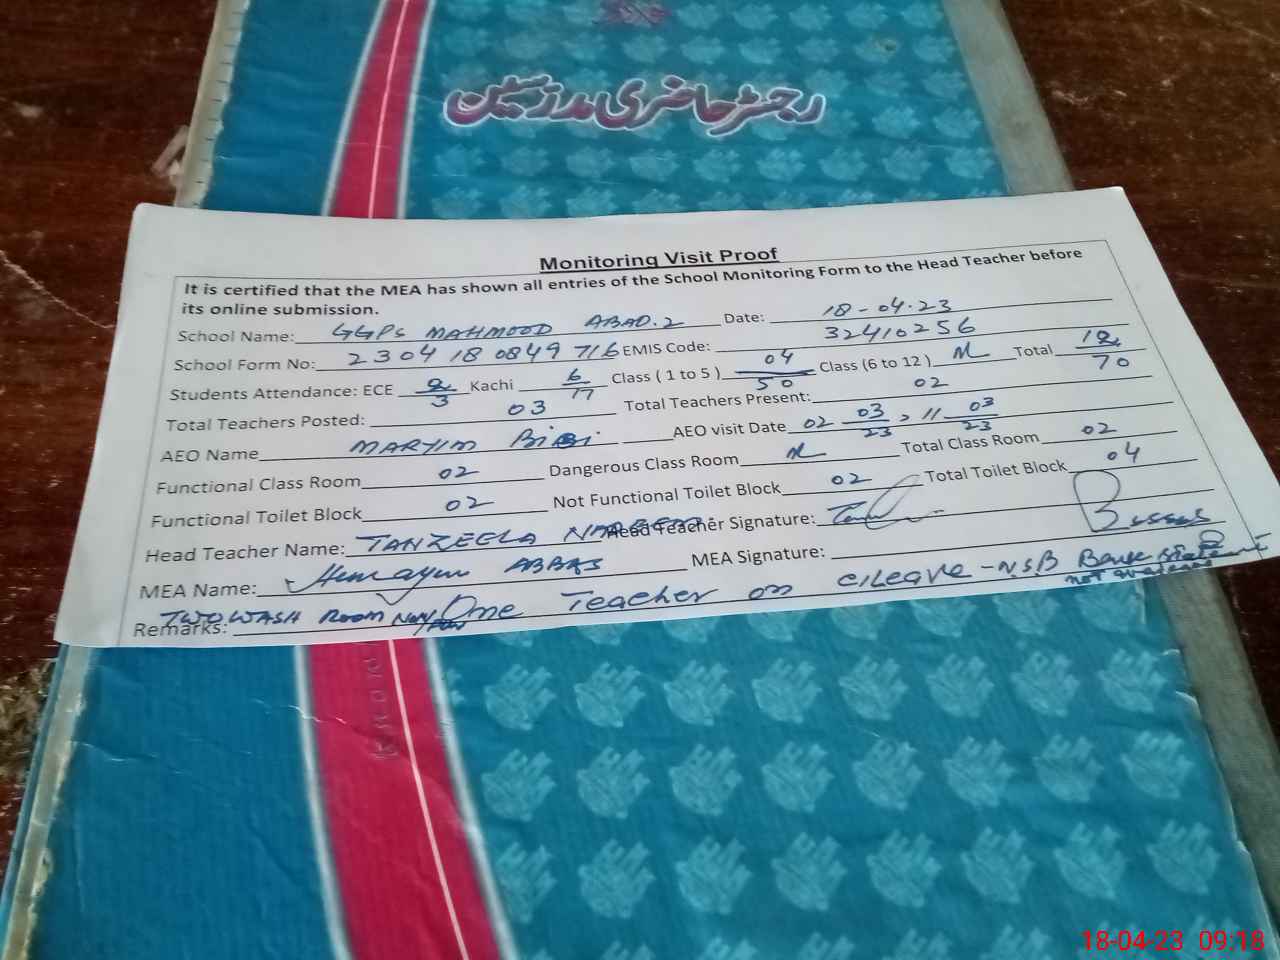 رجسٹر حاضری مدرسین
Monitoring Visit Proof
It is certified that the MEA has shown all entries of the School Monitoring Form to the Head Teacher before
its online submission.
School Name: GGPS MAHMOOD ABAD.2 Date: 18-04-23
School Form No: 2304180849716 EMIS Code: 32410256
Students Attendance: ECE 2/3 Kachi 6/17 Class ( 1 to 5 ) 04/50 Class (6 to 12 ) Total 12/70
Total Teachers Posted: 03 Total Teachers Present: 02
AEO Name MARYIM BiBi AEO visit Date 02 03/23 > 11 03/23
Functional Class Room 02 Dangerous Class Room Total Class Room 02
Functional Toilet Block 02 Not Functional Toilet Block 02 Total Toilet Block 04
Head Teacher Name: TANZEELA Head Teacher Signature:
MEA Name: Humayun ABBAS MEA Signature:
Remarks: TWO WASH ROOM One Teacher on c/Leave - NSB Bank Statement
not
18-04-23 09:18